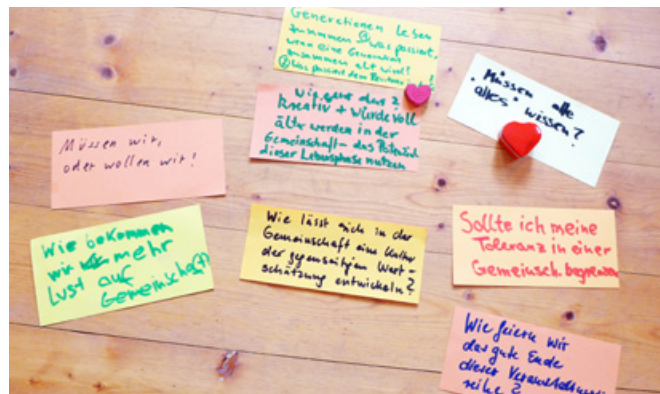 Generationen Leben
zusammen ① Was passiert,
wenn eine Generation
zusammen alt wird?
② Was passiert dem
Wie geht das?
kreativ + würdevoll
älter werden in der
Gemeinschaft - das Potenzial
dieser Lebensphase nutzen
Müssen alle
"alles" wissen?
Müssen wir,
oder wollen wir!
Wie bekommen
wir mehr
Lust auf
Gemeinschaft?
Wie lässt sich in der
Gemeinschaft eine Kultur
der gegenseitigen Wert-
schätzung entwickeln?
Sollte ich meine
Toleranz in einer
Gemeinsch. begrenzen
Wie feiern wir
das gute Ende
dieser Veranstaltungs
reihe?